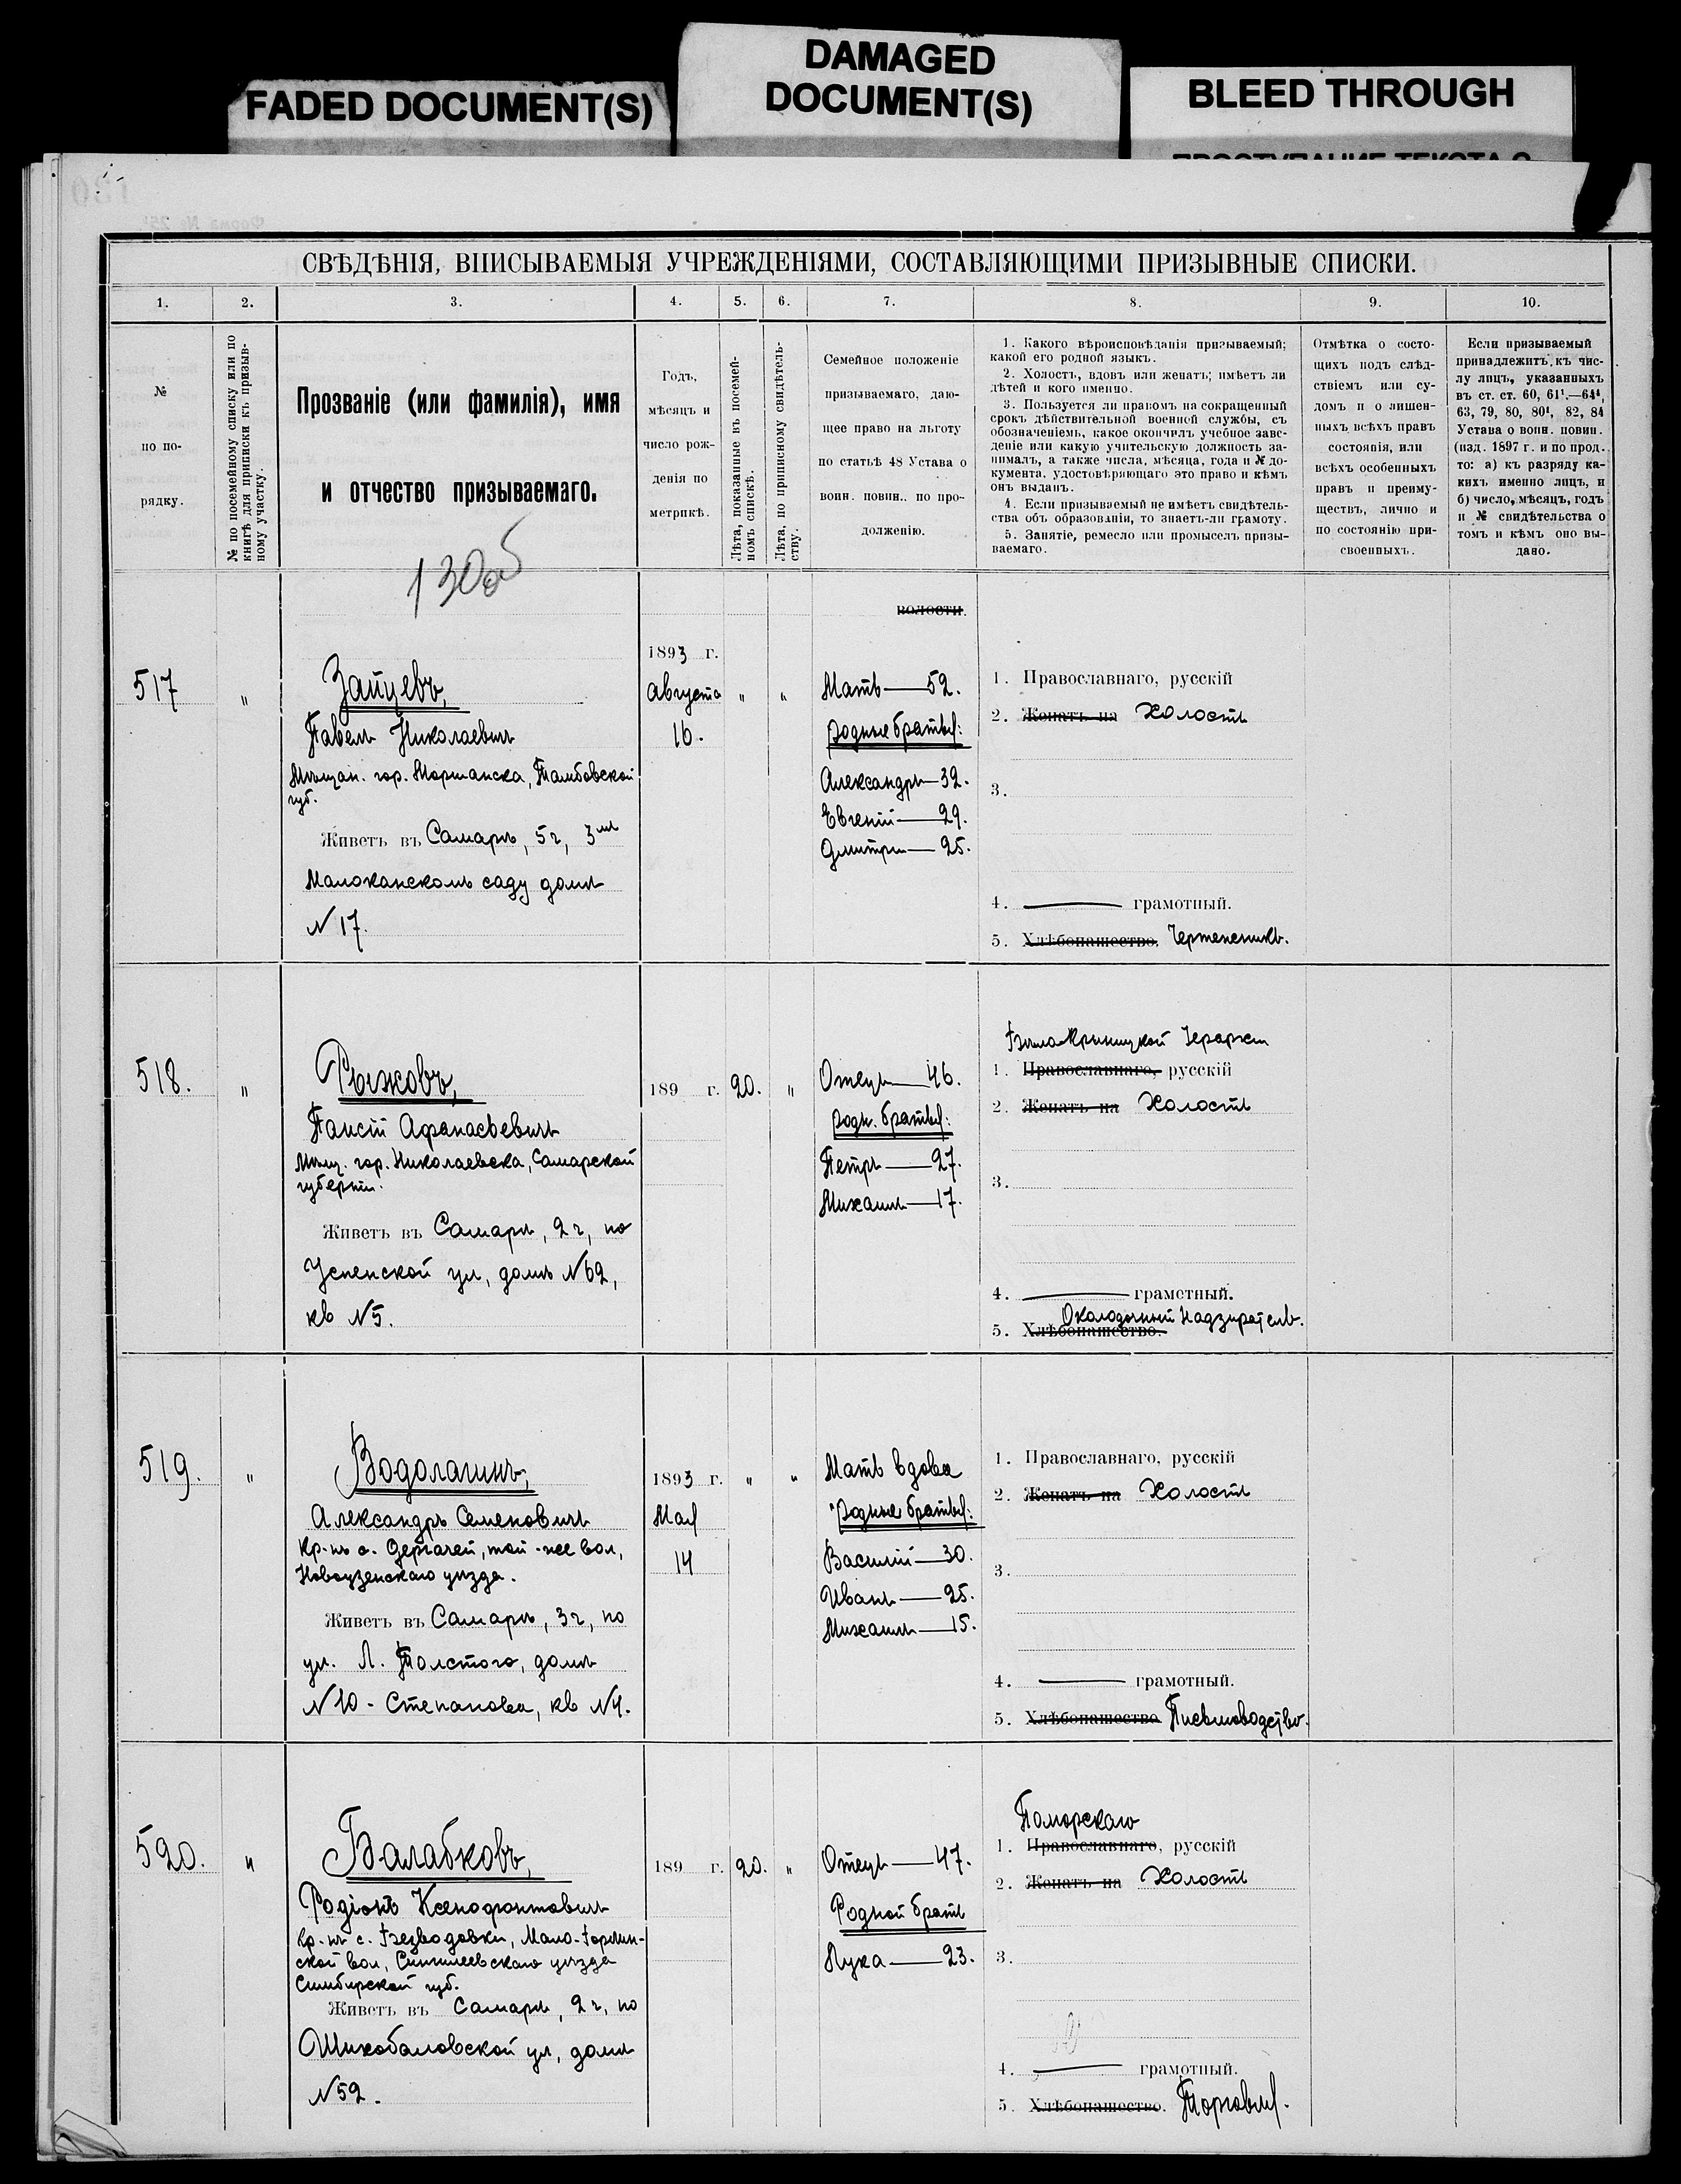 FADED DOCUMENT(S)
DAMAGED
DOCUMENT(S)
BLEED THROUGH
СВѢДѢНІЯ, ВПИСЫВАЕМЫЯ УЧРЕЖДЕНІЯМИ, СОСТАВЛЯЮЩИМИ ПРИЗЫВНЫЕ СПИСКИ.
1. 2. 3. 4. 5. 6. 7. 8. 9. 10.
№
по по-
рядку.
№ по посемейному списку или по
книгѣ для приписки къ призыв-
ному участку.
Прозваніе (или фамилія), имя
и отчество призываемаго.
130об
Годъ,
мѣсяцъ и
число рож-
денія по
метрикѣ.
Лѣта, показанные въ посемей-
номъ спискѣ.
Лѣта, по приписному свидѣтель-
ству.
Семейное положеніе
призываемаго, даю-
щее право на льготу
по статьѣ 48 Устава о
воин. повин.. по про-
долженію.
1. Какого вѣроисповѣданія призываемый;
какой его родной языкъ.
2. Холостъ, вдовъ или женатъ; имѣетъ ли
дѣтей и кого именно.
3. Пользуется ли правомъ на сокращенный
срокъ дѣйствительной военной службы, съ
обозначеніемъ, какое окончилъ учебное заве-
деніе или какую учительскую должность за-
нималъ, а также числа, мѣсяца, года и № до-
кумента, удостовѣряющаго это право и кѣмъ
онъ выданъ.
4. Если призываемый не имѣетъ свидѣтель-
ства объ образованіи, то знаетъ-ли грамоту.
5. Занятіе, ремесло или промыселъ призы-
ваемаго.
Отмѣтка о состо-
щихъ подъ слѣд-
ствіемъ или су-
домъ и о лишен-
ныхъ всѣхъ правъ
состоянія, или
всѣхъ особенныхъ
правъ и преиму-
ществъ, лично и
по состоянію при-
своенныхъ.
Если призываемый
принадлежитъ къ чис-
лу лицъ, указанныхъ
въ ст. ст. 60, 61¹.—64⁴,
63, 79, 80, 80¹, 82, 84
Устава о воин. повин.
(изд. 1897 г. и по прод.
то: а) къ разряду ка-
кихъ именно лицъ, и
б) число, мѣсяцъ, годъ
и № свидѣтельства о
томъ и кѣмъ оно вы-
дано.
волости.
517
"
Зайцевъ,
Павелъ Николаевичъ
Мѣщан. гор. Моршанска, Тамбовской
губ.
Живетъ въ Самарѣ, 5 ч, 3мъ
Молоканскомъ саду домъ
N 17.
1893 г.
Августа
16.
"
"
Мать—52.
родные братья:
Александръ—32.
Евгеній—29.
Дмитрій—25.
1. Православнаго, русскій
2. Женатъ на Холостъ
3.
4. — грамотный.
5. Хлѣбопашество. Чертежникъ.
518.
"
Рыжовъ,
Паисій Афанасьевичъ
Мѣщ. гор. Николаевска, Самарской
губерніи.
Живетъ въ Самарѣ, 2 ч, по
Успенской ул, домъ N 62,
кв N 5.
189 г.
20.
"
Отецъ—46.
родн. братья:
Петръ—27.
Михаилъ—17.
Бѣло-Криницкой Іерархіи
1. Православнаго, русскій
2. Женатъ на Холостъ
3.
4. — грамотный.
Околодочный Надзиратель.
5. Хлѣбопашество.
519.
"
Водолагинъ,
Александръ Семеновичъ
Кр-нъ с. Дергачей, той-же вол,
Новоузенскаго уѣзда.
Живетъ въ Самарѣ, 3 ч, по
ул. Л. Толстого, домъ
N 10 - Степанова, кв N 4.
1893 г.
Мая
14
"
"
Мать вдова
Родные братья:
Василій—30.
Иванъ—25.
Михаилъ—15.
1. Православнаго, русскій
2. Женатъ на Холостъ
3.
4. — грамотный.
5. Хлѣбопашество Письмоводство.
520.
"
Балабковъ,
Родіонъ Ксенофонтовичъ
Кр-нъ с. Безводовки, Мало-
ской вол, Сингилеевскаго уѣзда
Симбирской губ.
Живетъ въ Самарѣ, 2 ч, по
Шихобаловской ул, домъ
N 52.
189 г.
20.
"
Отецъ—47.
Родной братъ
Лука—23.
Поморскаго
1. Православнаго, русскій
2. Женатъ на Холостъ
3.
4. — грамотный.
5. Хлѣбопашество. Торговля.